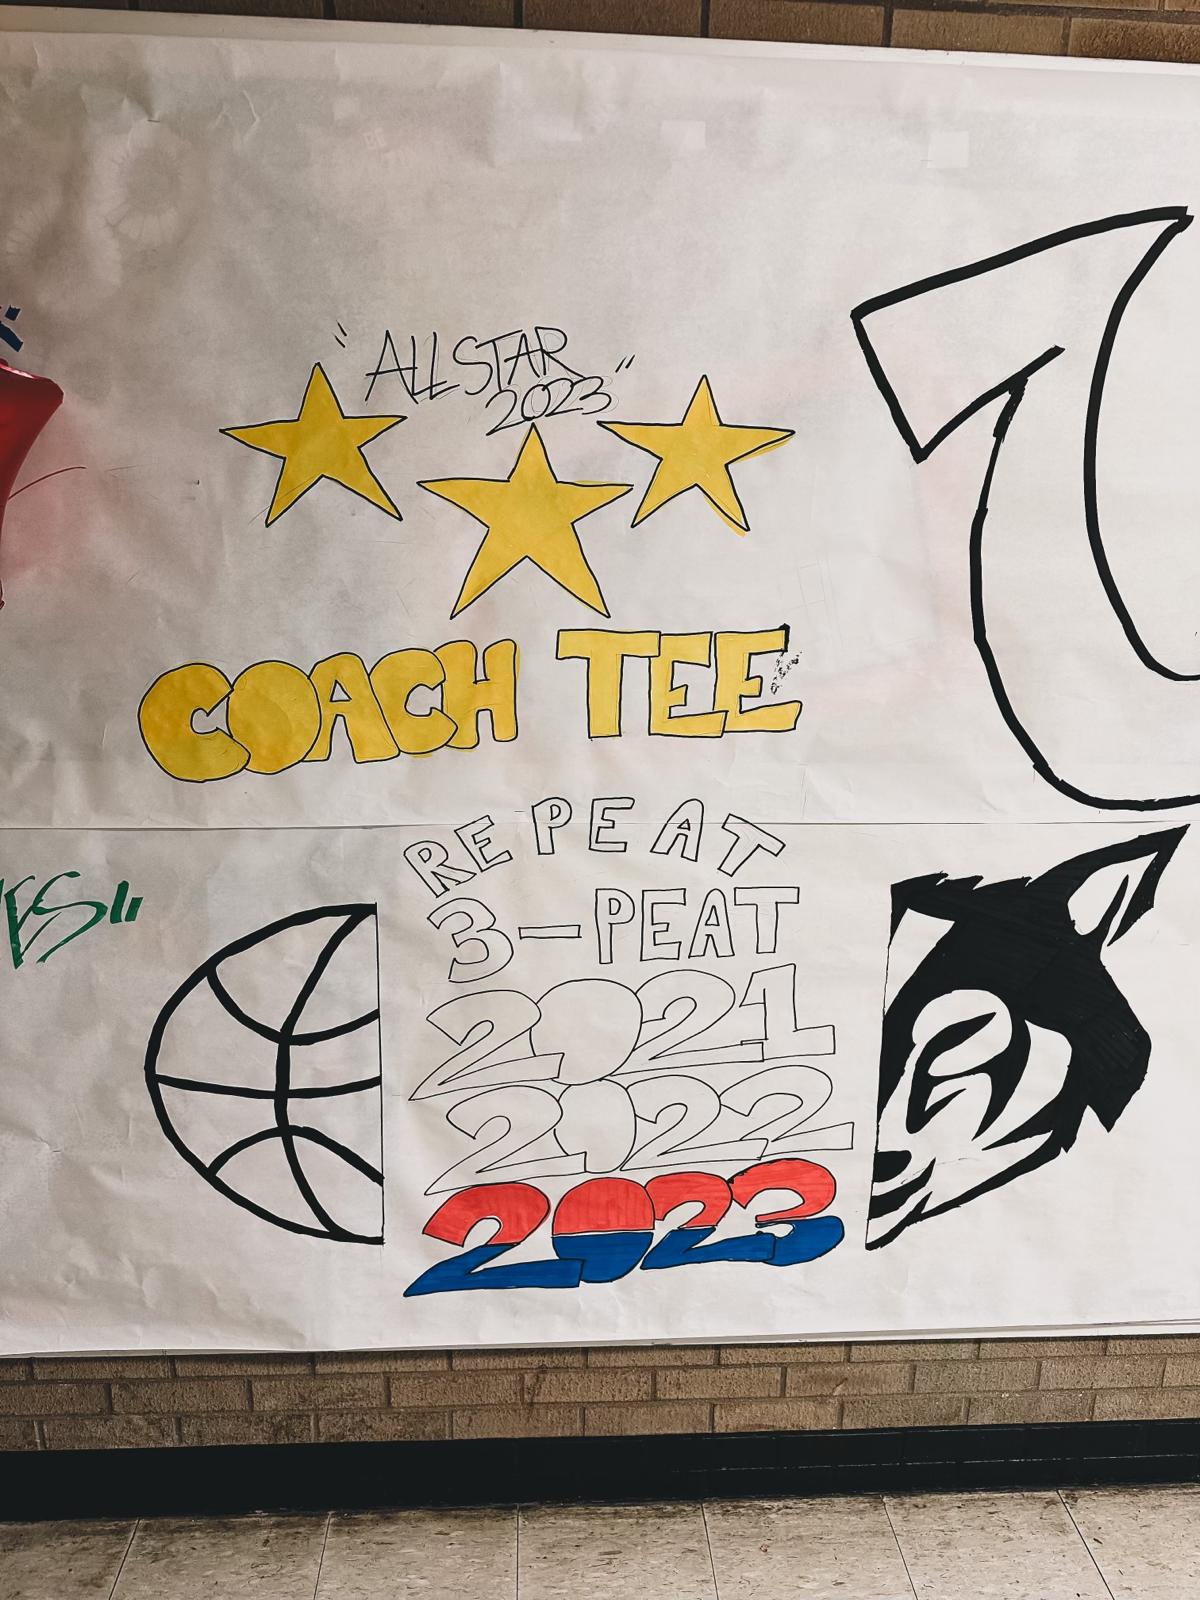 "ALL STAR
2023"
COACH TEE
REPEAT
3-PEAT
2021
2022
2023